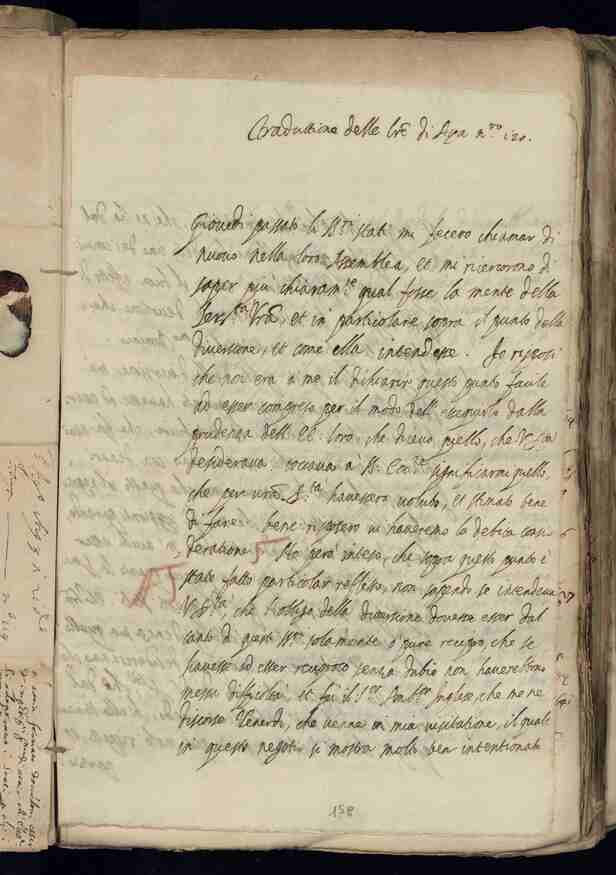 Traduttione delle lre di Aya n.ro 120.
Giovedi passato li SS.ri stati mi fecero chiamar di
nuovo nella loro Assemblea, et mi ricercorono di
saper più chiaram.te qual fosse la mente della
Ser.tà Vrã et in particolare sopra il punto della
diversione, et come ella intendesse. Io risposi
che non era a me il dichiarir questo punto facile
ad esser compreso per il modo dell' esseguirlo dalla
prudenza dell' EE. loro, che dicevo quello, che V. Ser.tà
desiderava toccava à VV. Ecc.ze significarmi quello,
che per vrã S.tà havessero voluto, et stimato bene
di fare. bene risposero vi haveremo la debita consi
deratione. Ho però inteso, che sopra questo punto è
stato fatto particolar reflesso, non sapendo se intendeva
V. Ser.tà, che l'obligo della diversione dovesse esser dal
canto di questi SS.ri solamente o pure reciproco, che se
havesse ad esser reciproco senza dubio non haverebbono
messa difficoltà, et fu il S.or Amb.or Inglese che me ne
discorse Venerdi, che venne in mia visitatione, il quale
in questo negotio si mostra molto ben intentionato
158